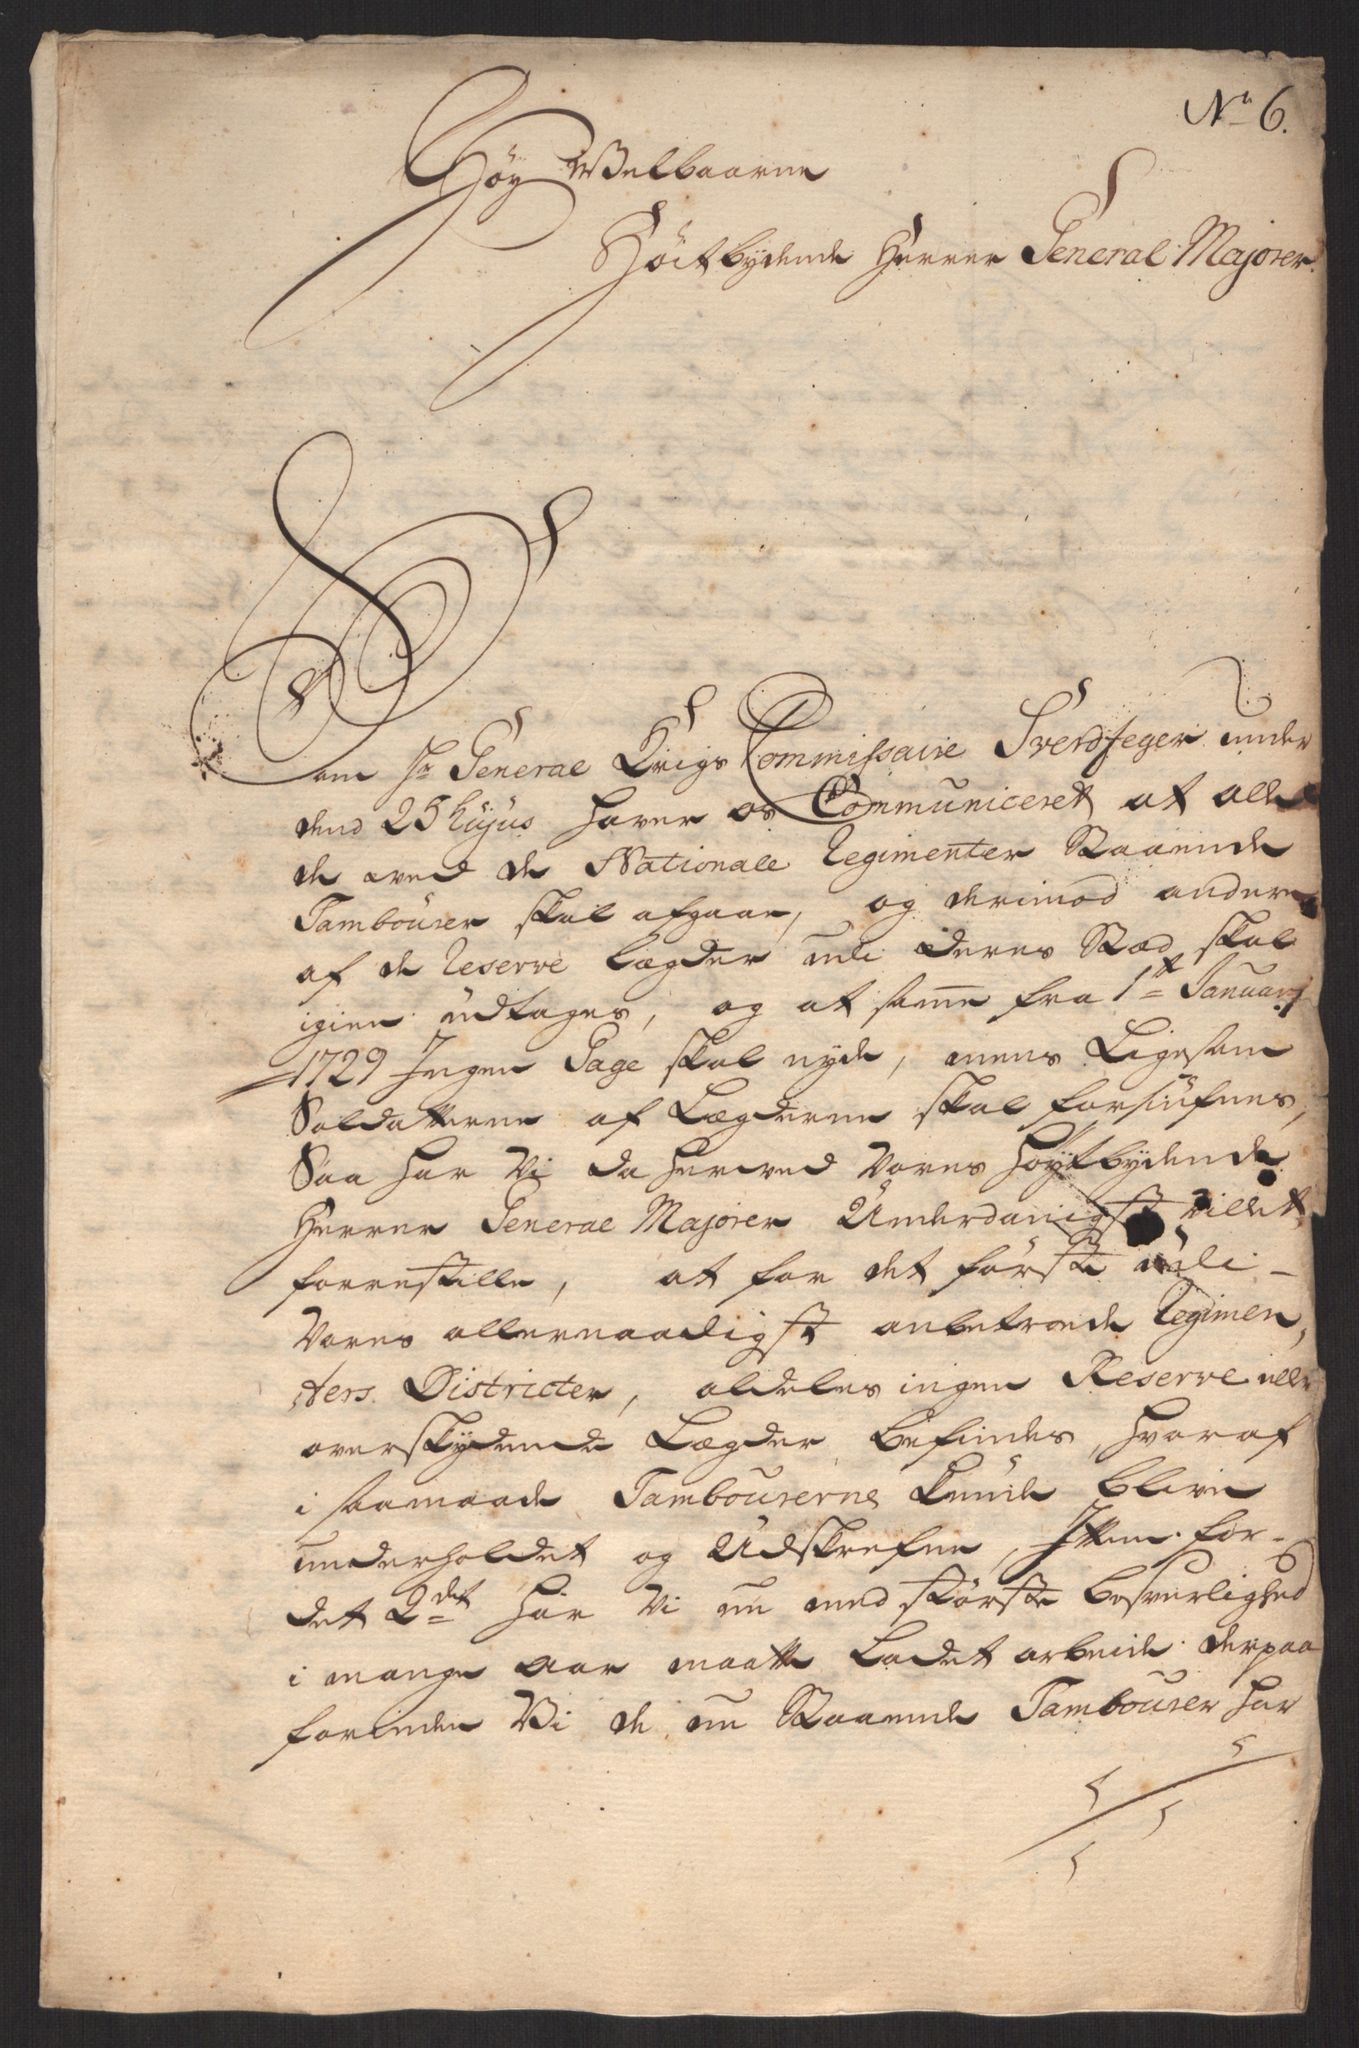 No 6.
Høy Welbaarne
Høitbydende Herrer General Majorer.
Som Hr General Krigs Commissaire Sverdfeger under
dend 25 hujus haver os Communiceret at alle
de ved de Nationale Regimenter Staaende
Tambourer skal afgaae, og derimod andere
af de Reserve Lægder udi deres Stæd skal
igien udtages, og at samme fra 1te Januarj
1729 Ingen Gage skal nyde, mens Ligesom
Soldatterne af Lægderne skal forsiufnes,
Saa har Vi da herved Vores høytbydende
Herrer General Majorer Underdanigst villet
forrestille, at for det første udi
Vores allernaadigst anbetroede Regimen,
ters Districter, aldeles ingen Reserve eller
overskydende Lægder befindes, hvoraf
i saamaade Tambourerne kunde blive
underholdet og Udskrefne, Item for-
det 2det har Vi nu med største besverlighed
i mange Aar maatte Ladet arbeide derpaa
forinden Vi de nu Staaende Tambourer har